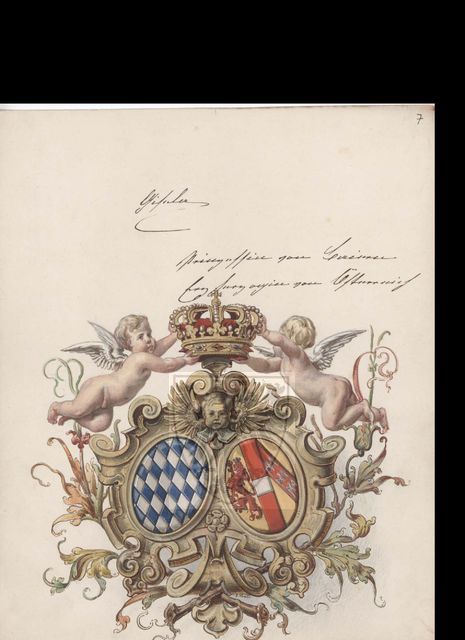 7
Gisela
Prinzessin von Baiern
Erzherzogin von Österreich